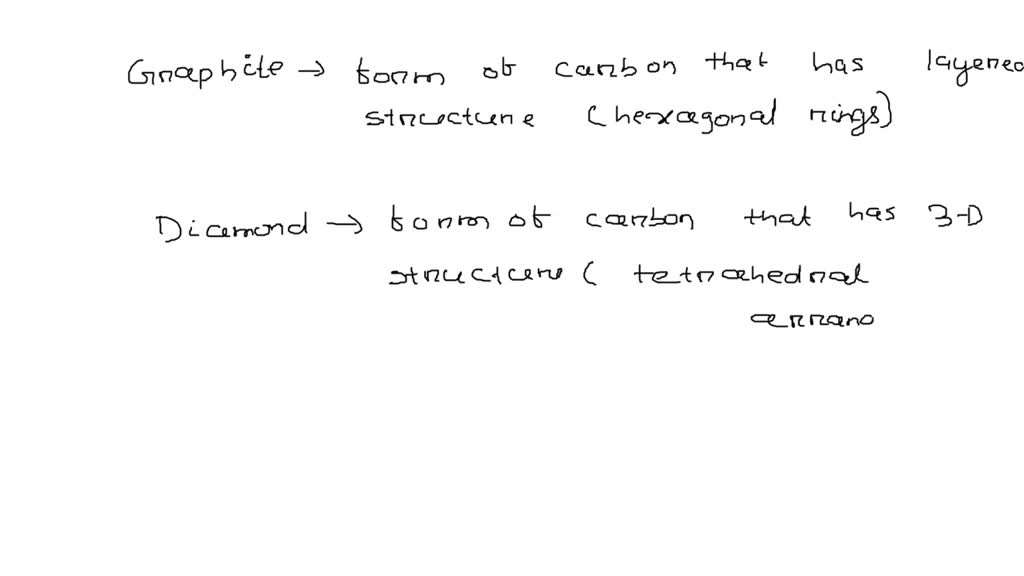 Graphite → form of carbon that has layered
structure (hexagonal rings)
Diamond → form of carbon that has 3-D
structure ( tetrahedral
arrang